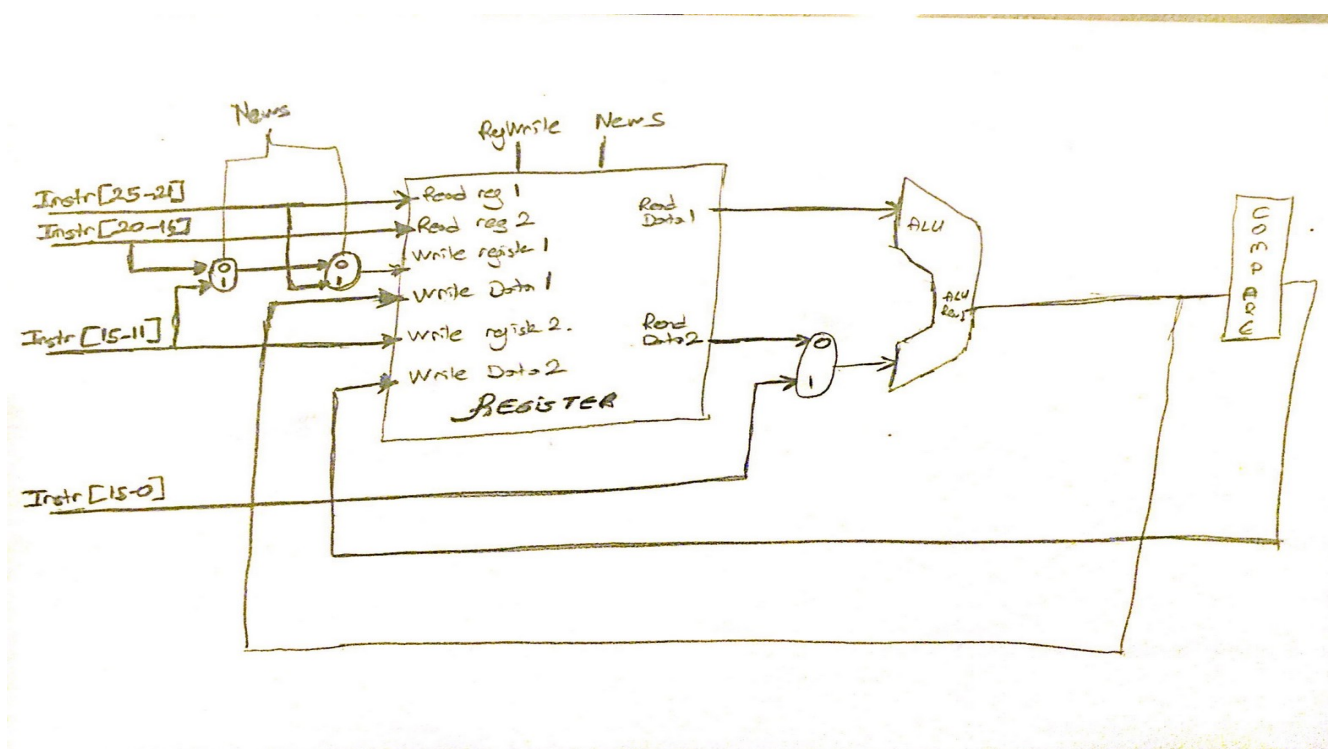 News
RegWrite News
Instr[25-21]
Instr[20-16]
Instr[15-11]
Instr[15-0]
0
1
0
1
Read reg 1
Read reg 2
Write regist 1
Write Data 1
Write regist 2.
Write Data 2
REGISTER
Read
Data1
Read
Data2
0
1
ALU
ALU
Res
COMPARE